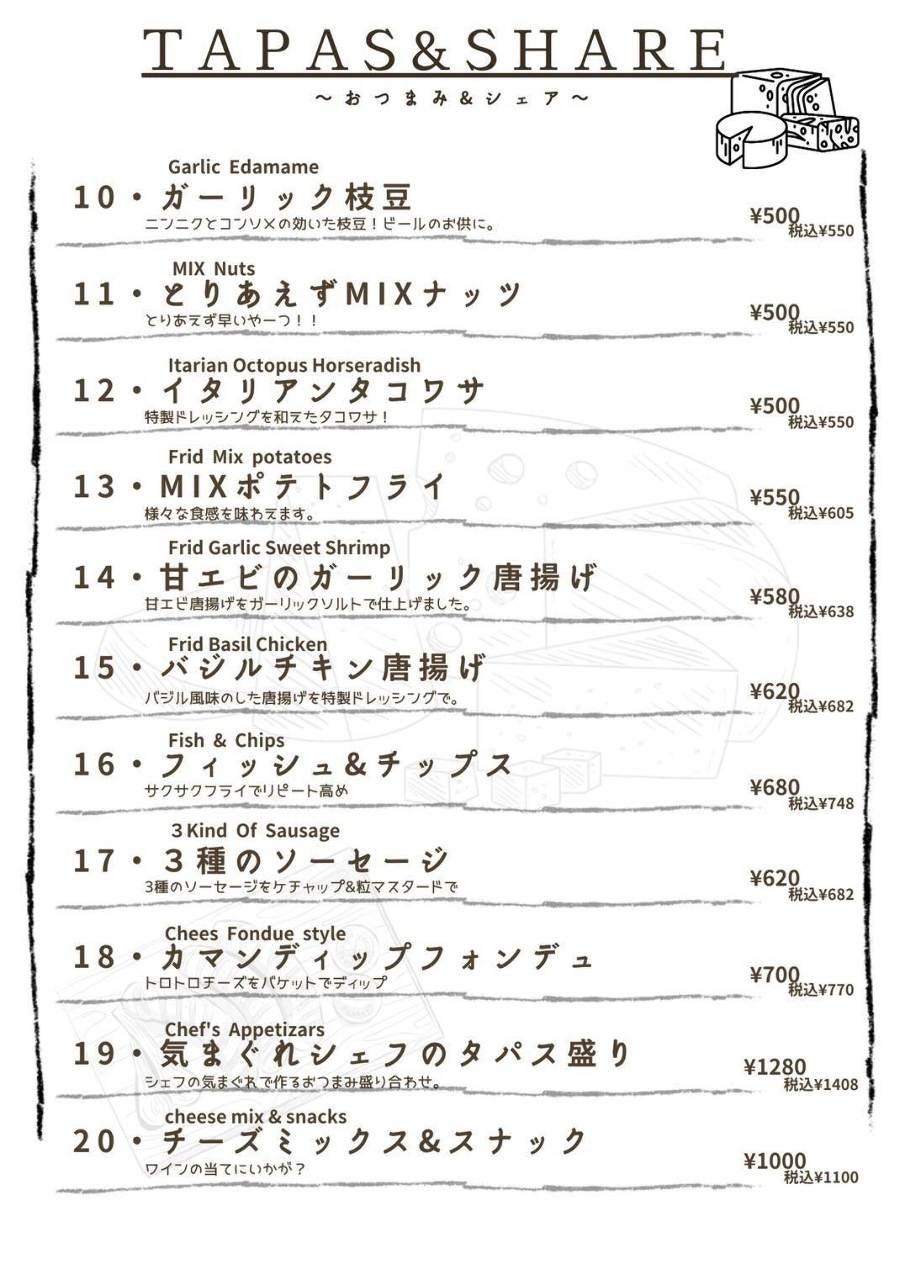 TAPAS&SHARE
～おつまみ&シェア～
Garlic Edamame
10・ガーリック枝豆
ニンニクとコンソメの効いた枝豆！ビールのお供に。
¥500
税込¥550
MIX Nuts
11・とりあえずMIXナッツ
とりあえず早いやーつ！！
¥500
税込¥550
Itarian Octopus Horseradish
12・イタリアンタコワサ
特製ドレッシングを和えたタコワサ！
¥500
税込¥550
Frid Mix potatoes
13・MIXポテトフライ
様々な食感を味わえます。
¥550
税込¥605
Frid Garlic Sweet Shrimp
14・甘エビのガーリック唐揚げ
甘エビ唐揚げをガーリックソルトで仕上げました。
¥580
税込¥638
Frid Basil Chicken
15・バジルチキン唐揚げ
バジル風味のした唐揚げを特製ドレッシングで。
¥620
税込¥682
Fish & Chips
16・フィッシュ&チップス
サクサクフライでリピート高め
¥680
税込¥748
３Kind Of Sausage
17・３種のソーセージ
3種のソーセージをケチャップ&粒マスタードで
¥620
税込¥682
Chees Fondue style
18・カマンディップフォンデュ
トロトロチーズをバケットでディップ
¥700
税込¥770
Chef's Appetizars
19・気まぐれシェフのタパス盛り
シェフの気まぐれで作るおつまみ盛り合わせ。
¥1280
税込¥1408
cheese mix & snacks
20・チーズミックス&スナック
ワインの当てにいかが？
¥1000
税込¥1100